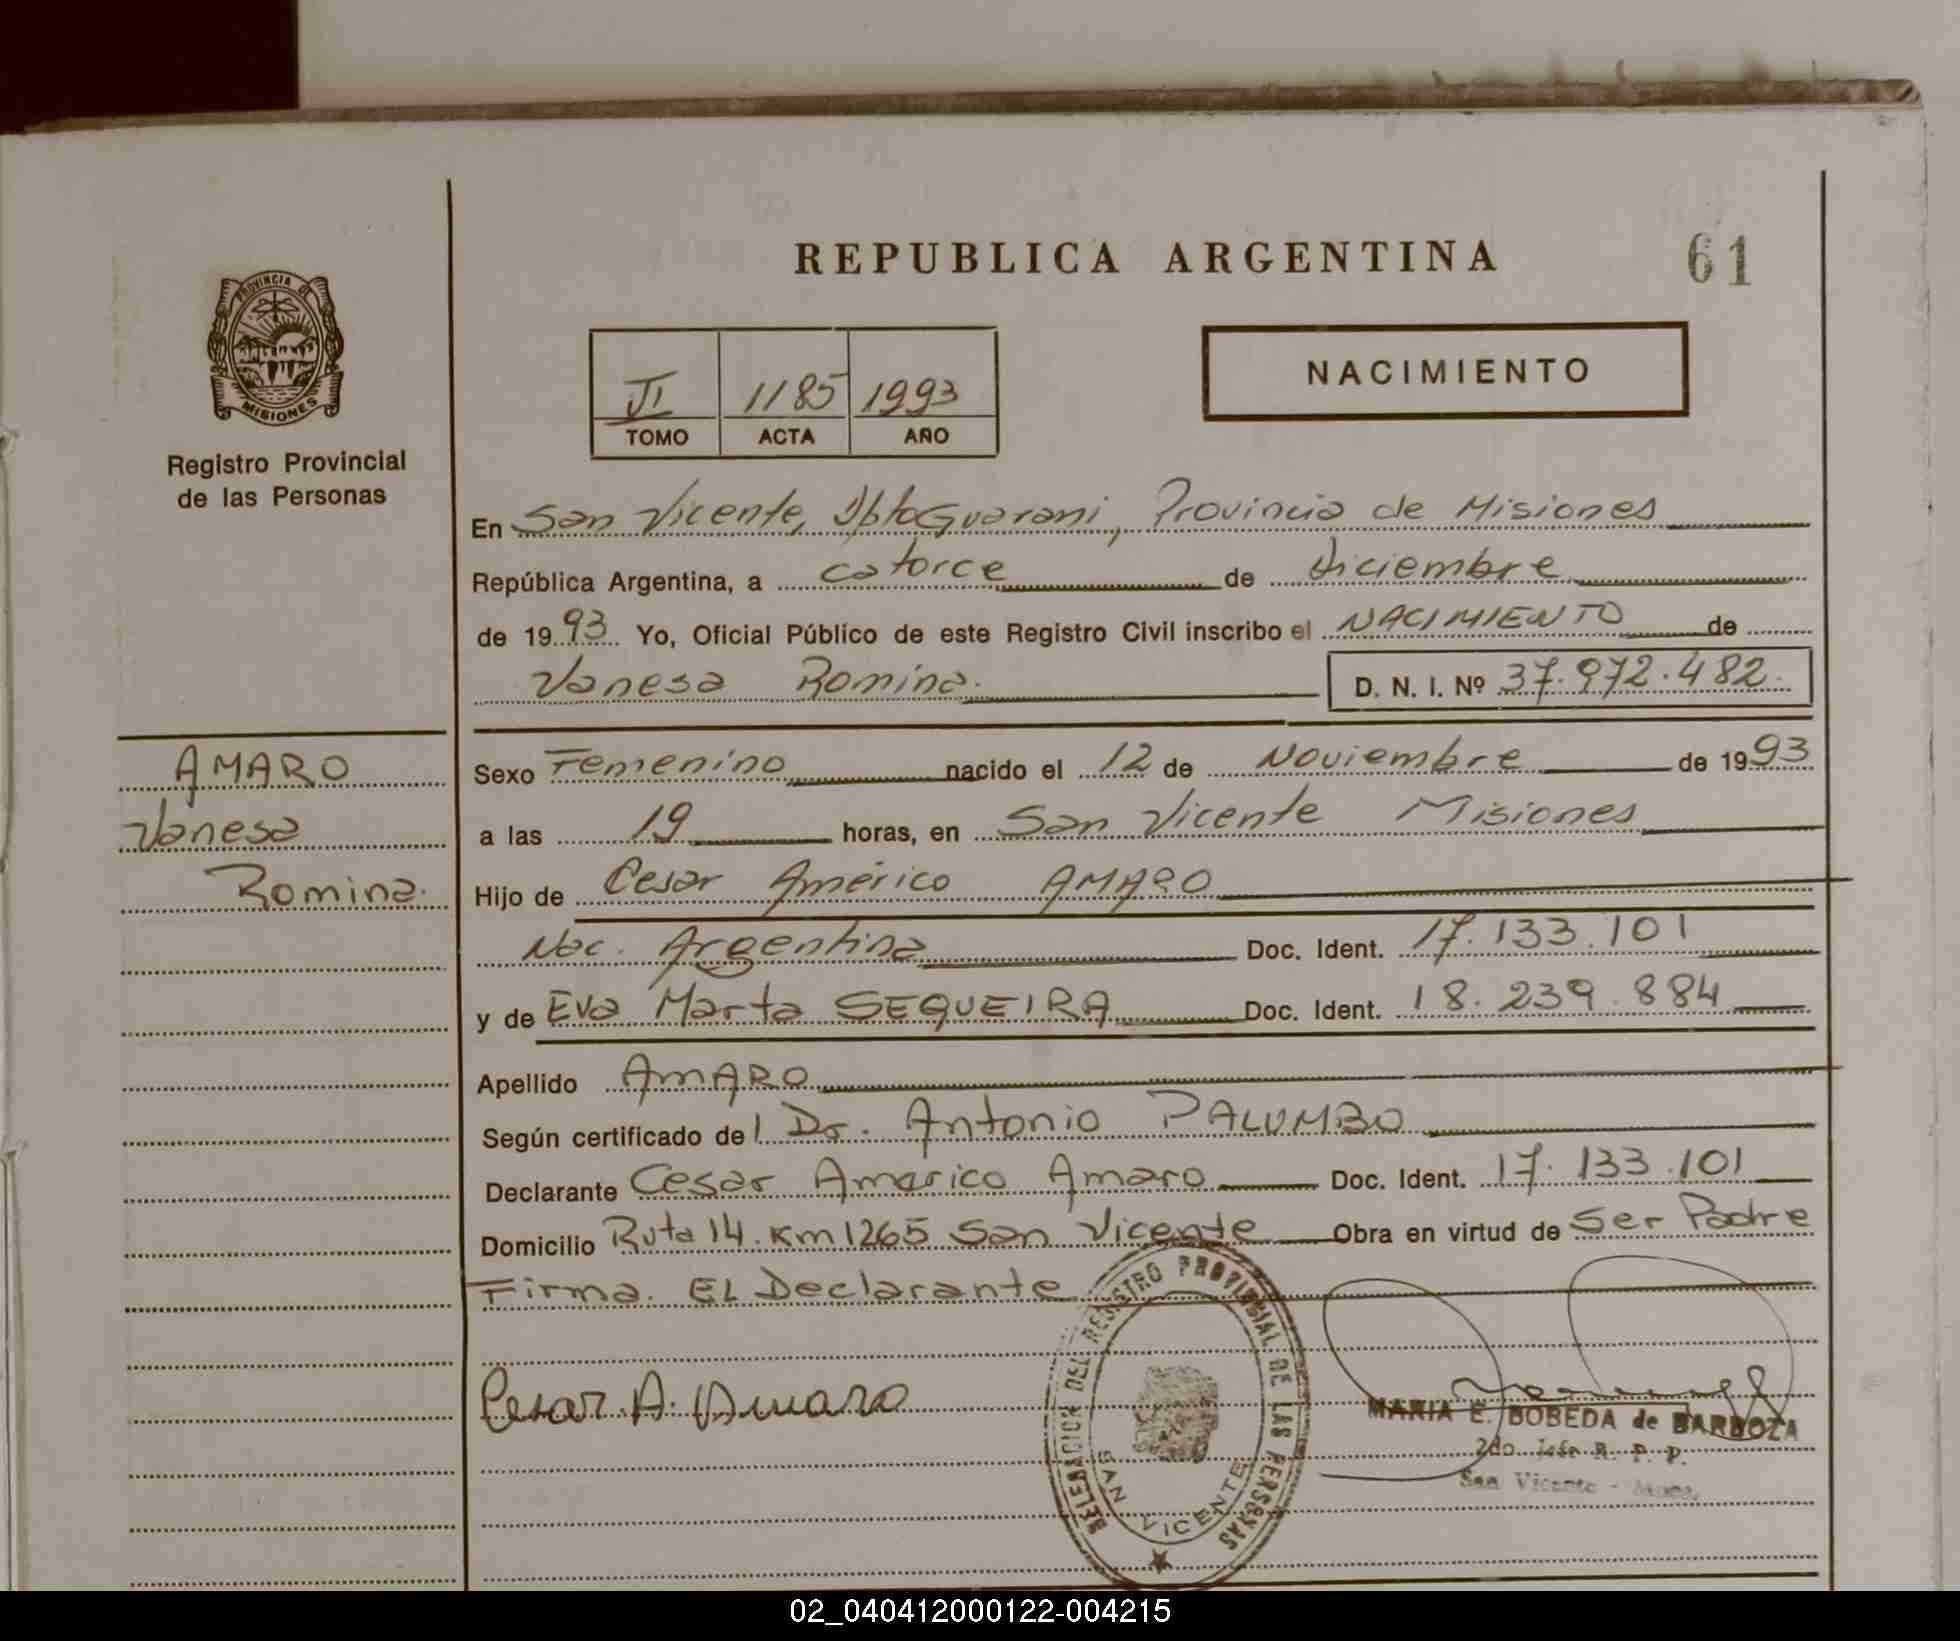 REPUBLICA ARGENTINA
61
PROVINCIA DE
MISIONES
Registro Provincial
de las Personas
II 1185 1993
TOMO ACTA AÑO
NACIMIENTO
En San Vicente, Dpto Guarani, Provincia de Misiones
República Argentina, a catorce de diciembre
de 1993 Yo, Oficial Público de este Registro Civil inscribo el NACIMIENTO de
Vanesa Romina. D. N. I. Nº 37.972.482.
AMARO
Vanesa
Romina.
Sexo Femenino nacido el 12 de Noviembre de 1993
a las 19 horas, en San Vicente Misiones
Hijo de Cesar Américo AMARO
Nac. Argentina Doc. Ident. 17.133.101
y de Eva Marta SEQUEIRA Doc. Ident. 18.239.884
Apellido AMARO
Según certificado del Dr. Antonio PALUMBO
Declarante Cesar Americo Amaro Doc. Ident. 17.133.101
Domicilio Ruta 14. Km 1265 San Vicente Obra en virtud de Ser Padre
Firma. EL Declarante
Cesar A. Amaro
DELEGACION DEL REGISTRO PROVINCIAL DE LAS PERSONAS
SAN VICENTE
MARIA E. BOBEDA de BARBOZA
2do. Jefe R. P. P.
San Vicente - Mnes.
02_040412000122-004215